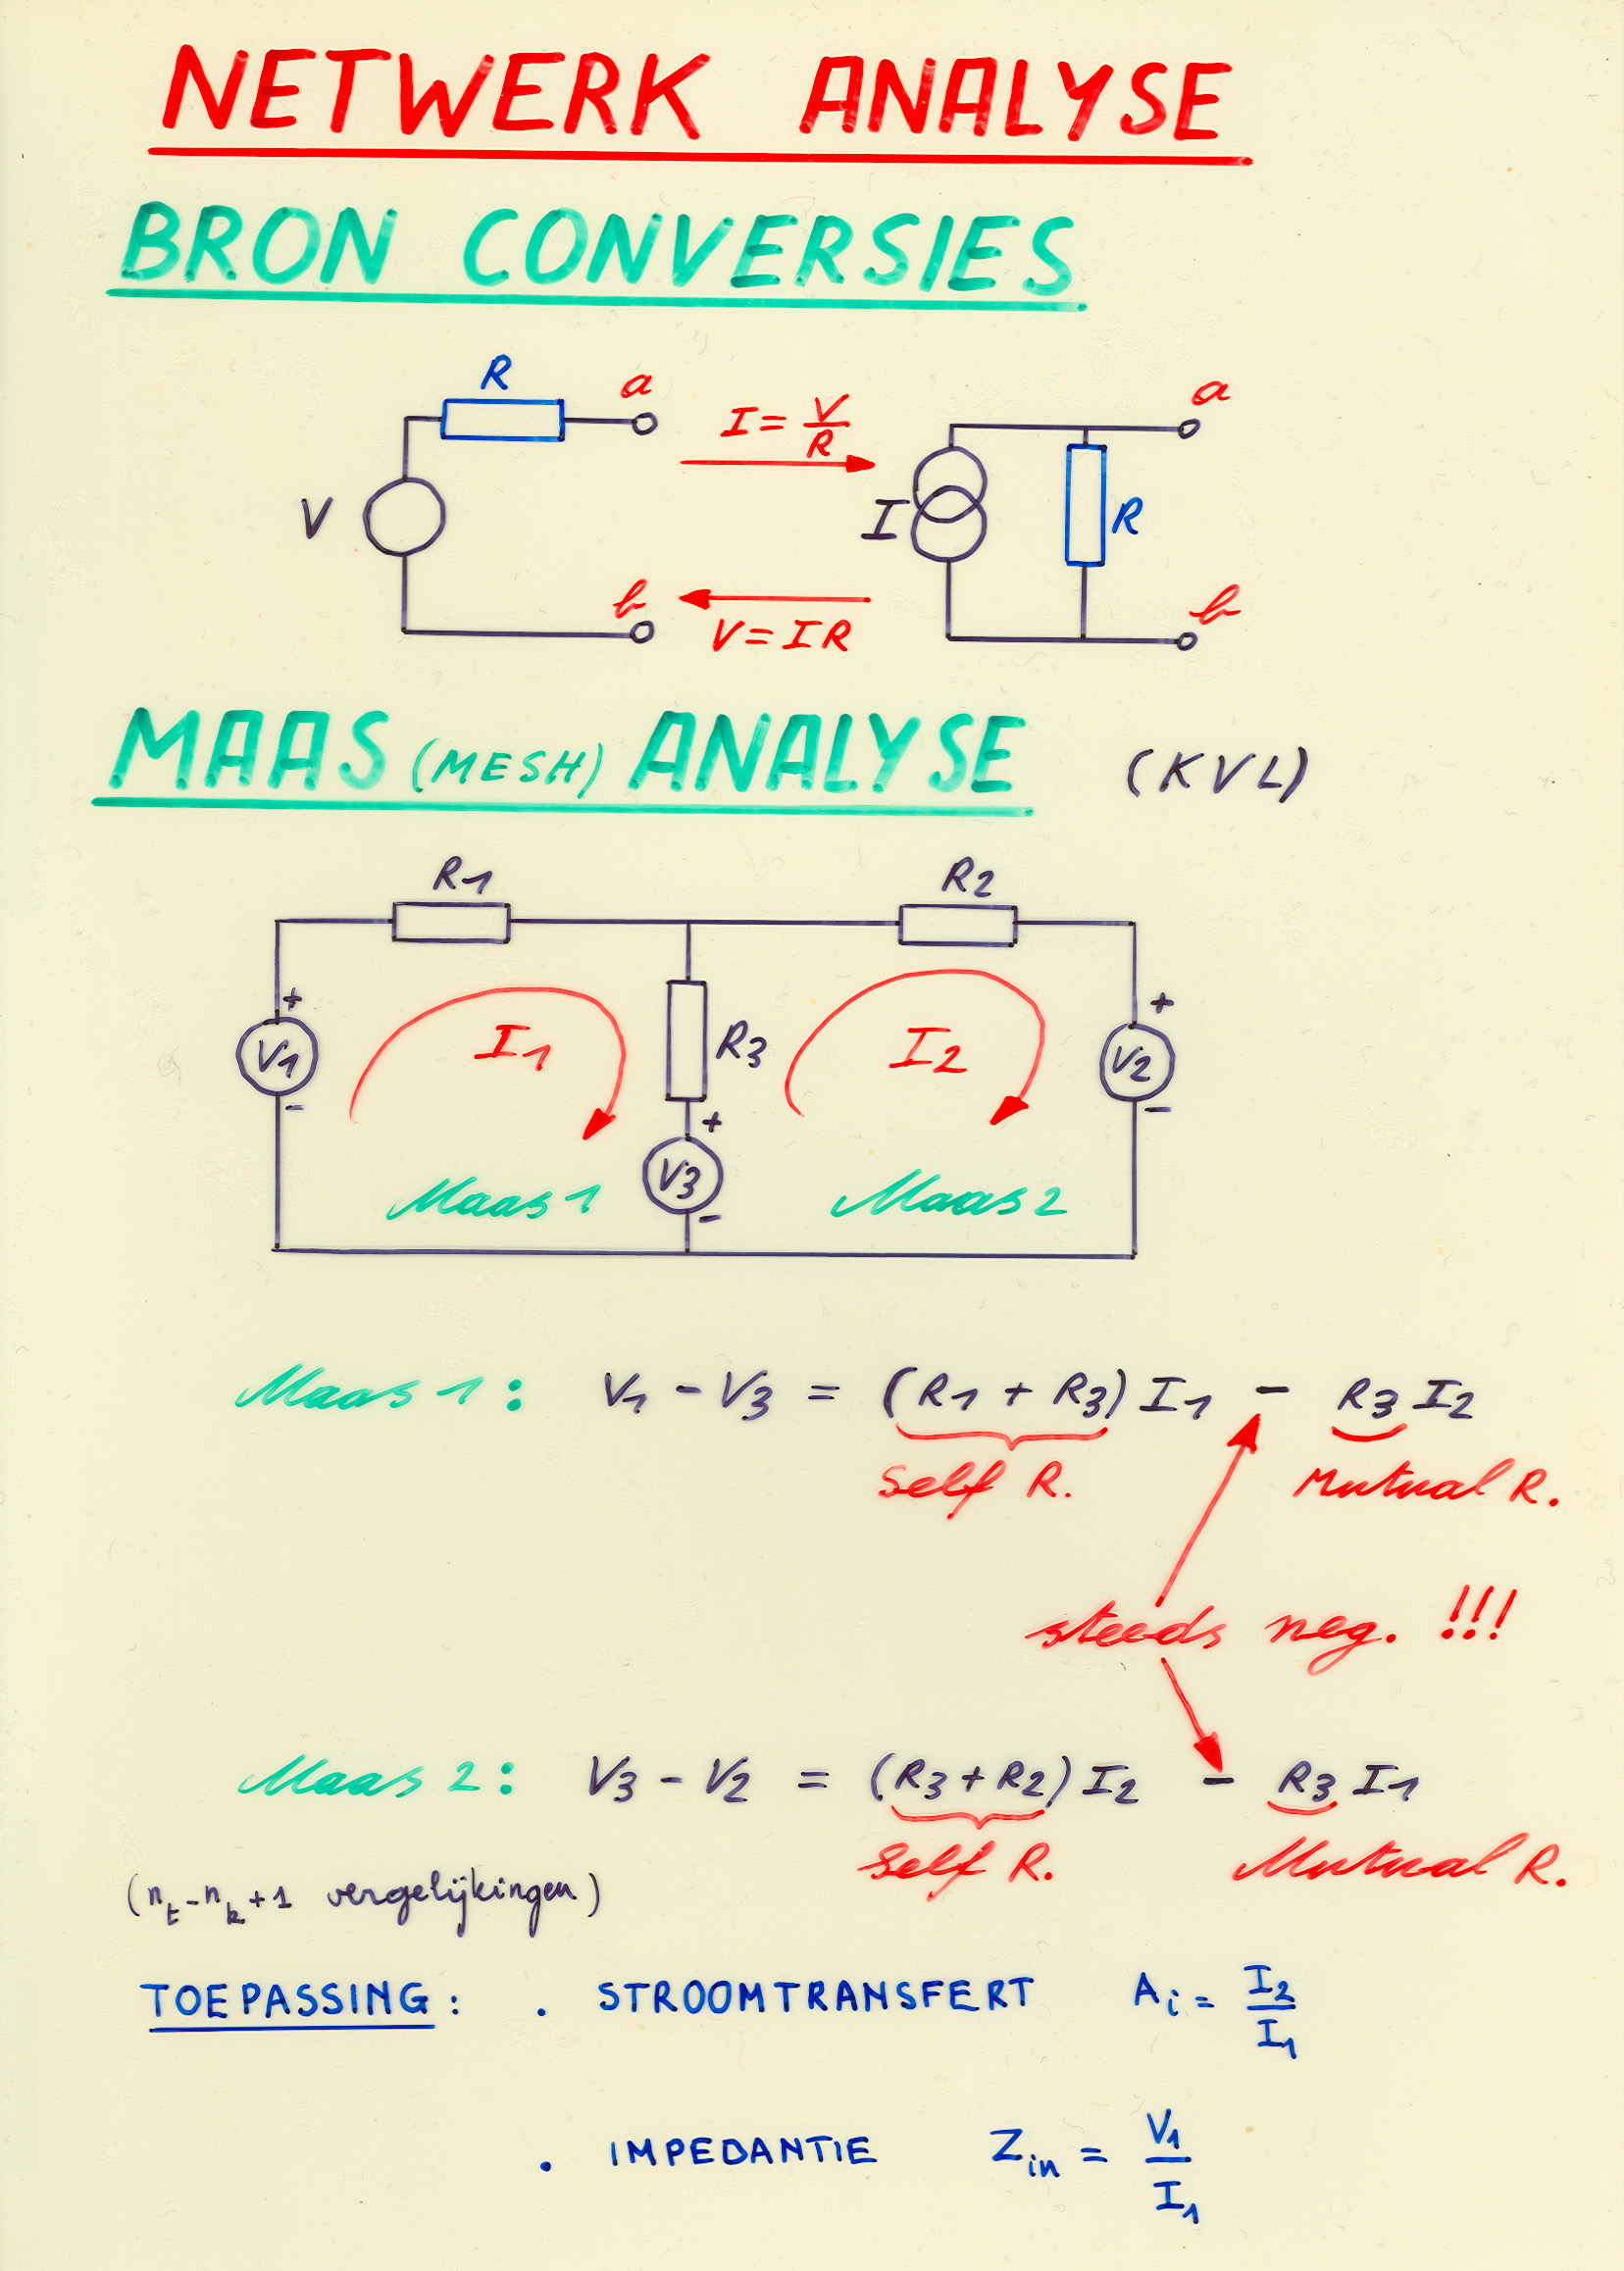 NETWERK ANALYSE
BRON CONVERSIES
R a I = V/R a
V I R
b V = IR b
MAAS (MESH) ANALYSE (KVL)
R1 R2
+ +
V1 I1 R3 I2 V2
- + -
V3
Maas 1 - Maas 2
Maas 1 : V1 - V3 = (R1 + R3) I1 - R3 I2
Self R. Mutual R.
steeds neg. !!!
Maas 2 : V3 - V2 = (R3 + R2) I2 - R3 I1
Self R. Mutual R.
(nt - nk + 1 vergelijkingen)
TOEPASSING : . STROOMTRANSFERT Ai = I2/I1
. IMPEDANTIE Zin = V1/I1